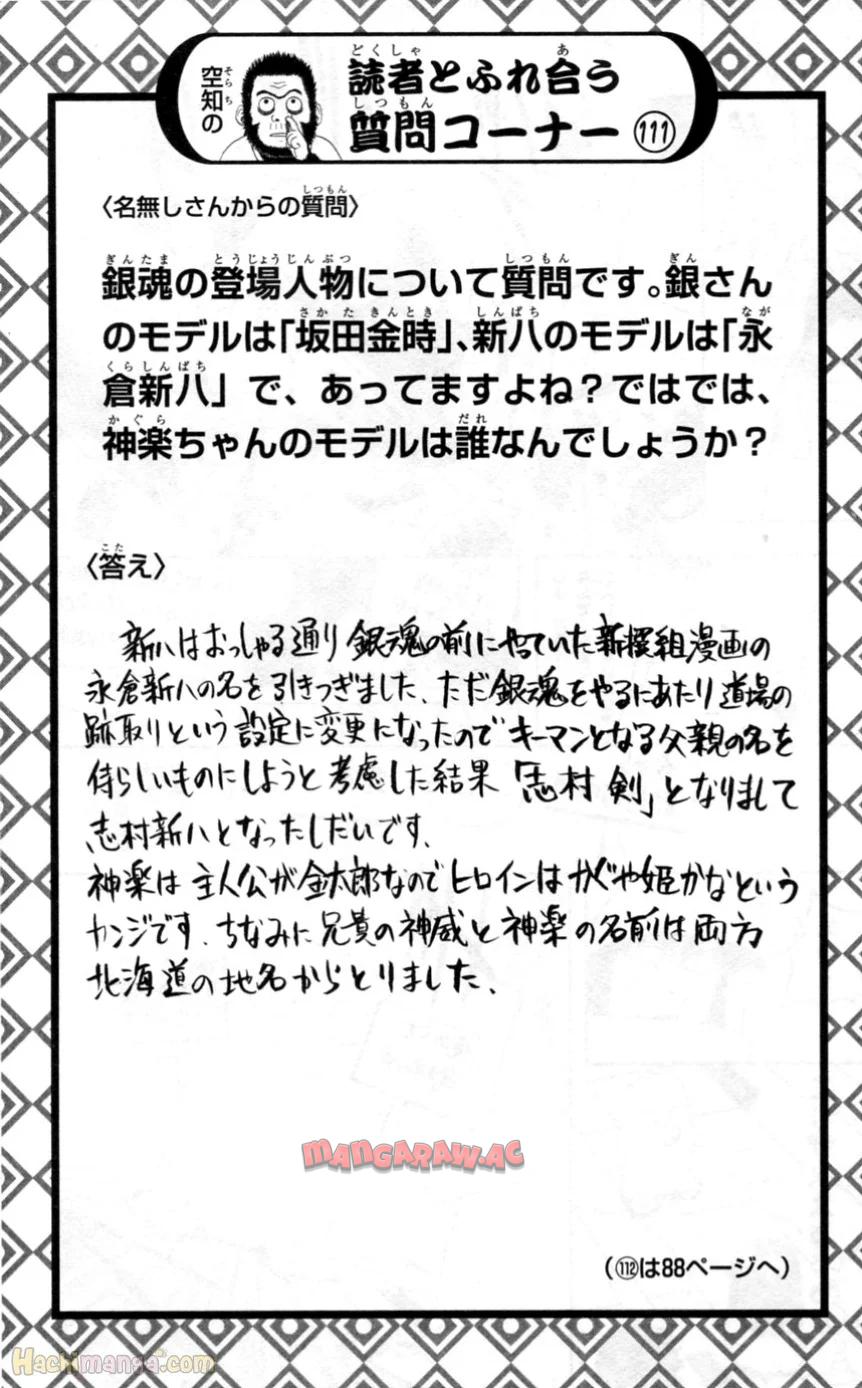 空知の
読者とふれ合う
質問コーナー 111
〈名無しさんからの質問〉
銀魂の登場人物について質問です。銀さん
のモデルは「坂田金時」、新八のモデルは「永
倉新八」で、あってますよね？ではでは、
神楽ちゃんのモデルは誰なんでしょうか？
〈答え〉
新八はおっしゃる通り銀魂の前にやっていた新撰組漫画の
永倉新八の名を引きつぎました、ただ銀魂をやるにあたり道場の
跡取りという設定に変更になったのでキーマンとなる父親の名を
侍らしいものにしようと考慮した結果「志村 剣」となりまして
志村新八となったしだいです、
神楽は主人公が金太郎なのでヒロインはかぐや姫かなという
カンジです、ちなみに兄貴の神威と神楽の名前は両方
北海道の地名からとりました、
MANGARAW.AC
（112は88ページへ）
Hachimanga.com